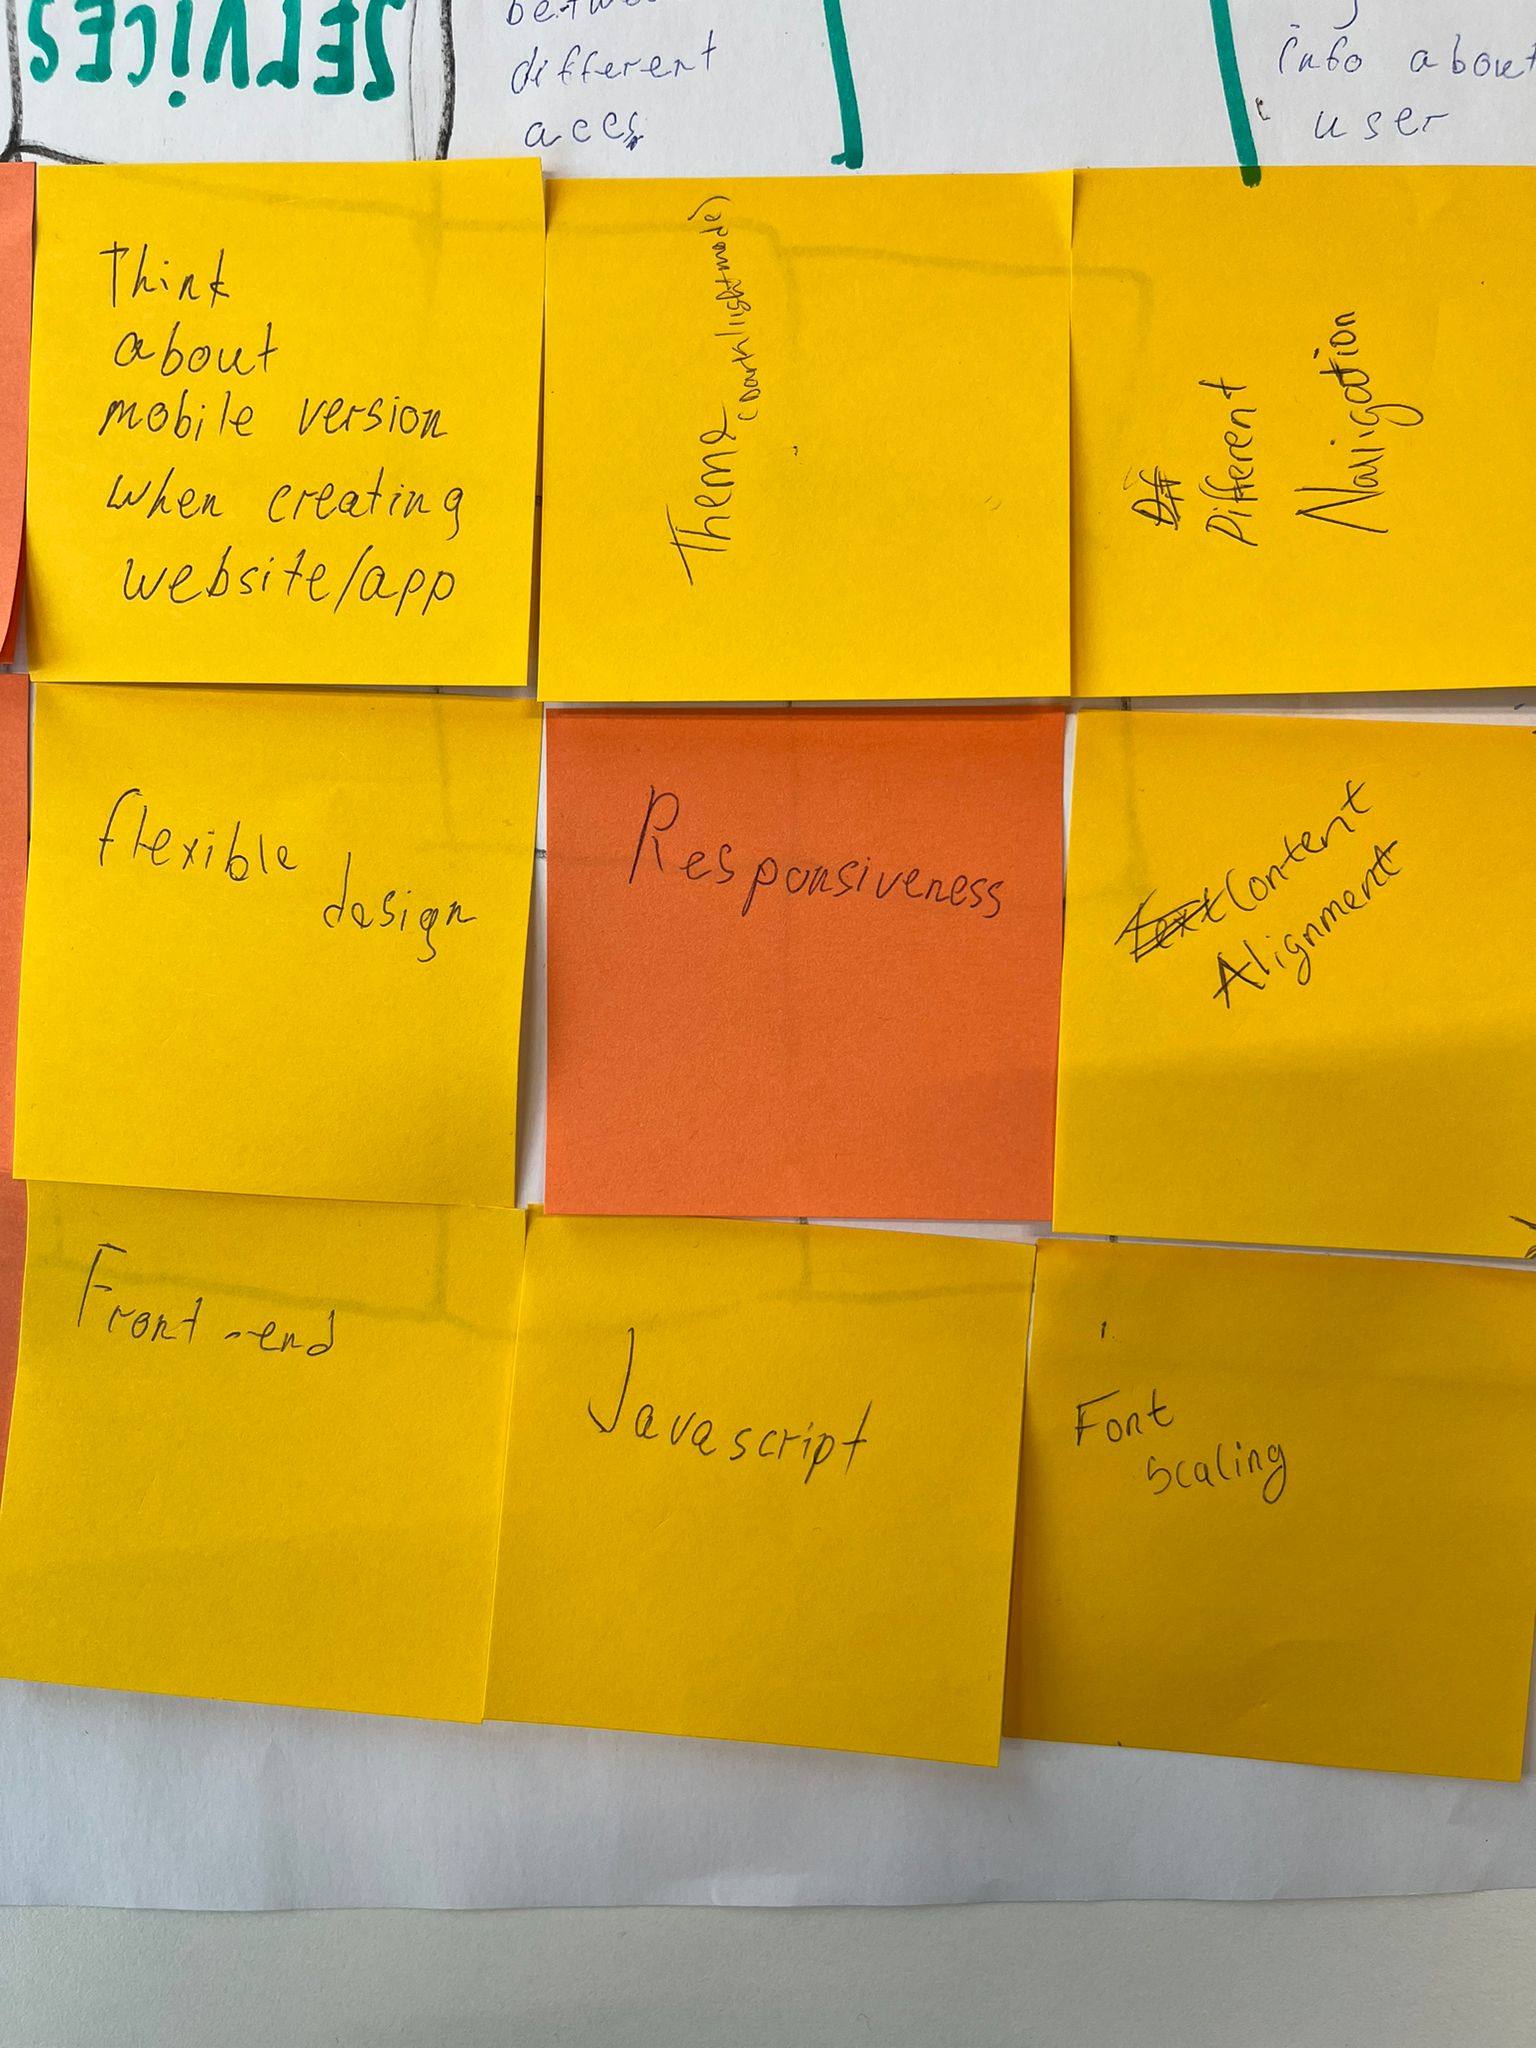 SERVICES
different
aces
info about
user
Think
about
mobile version
when creating
website/app
Theme
(Dark/lightmode)
Different
Navigation
flexible
design
Responsiveness
Content
Alignment
Front-end
Javascript
Font
Scaling